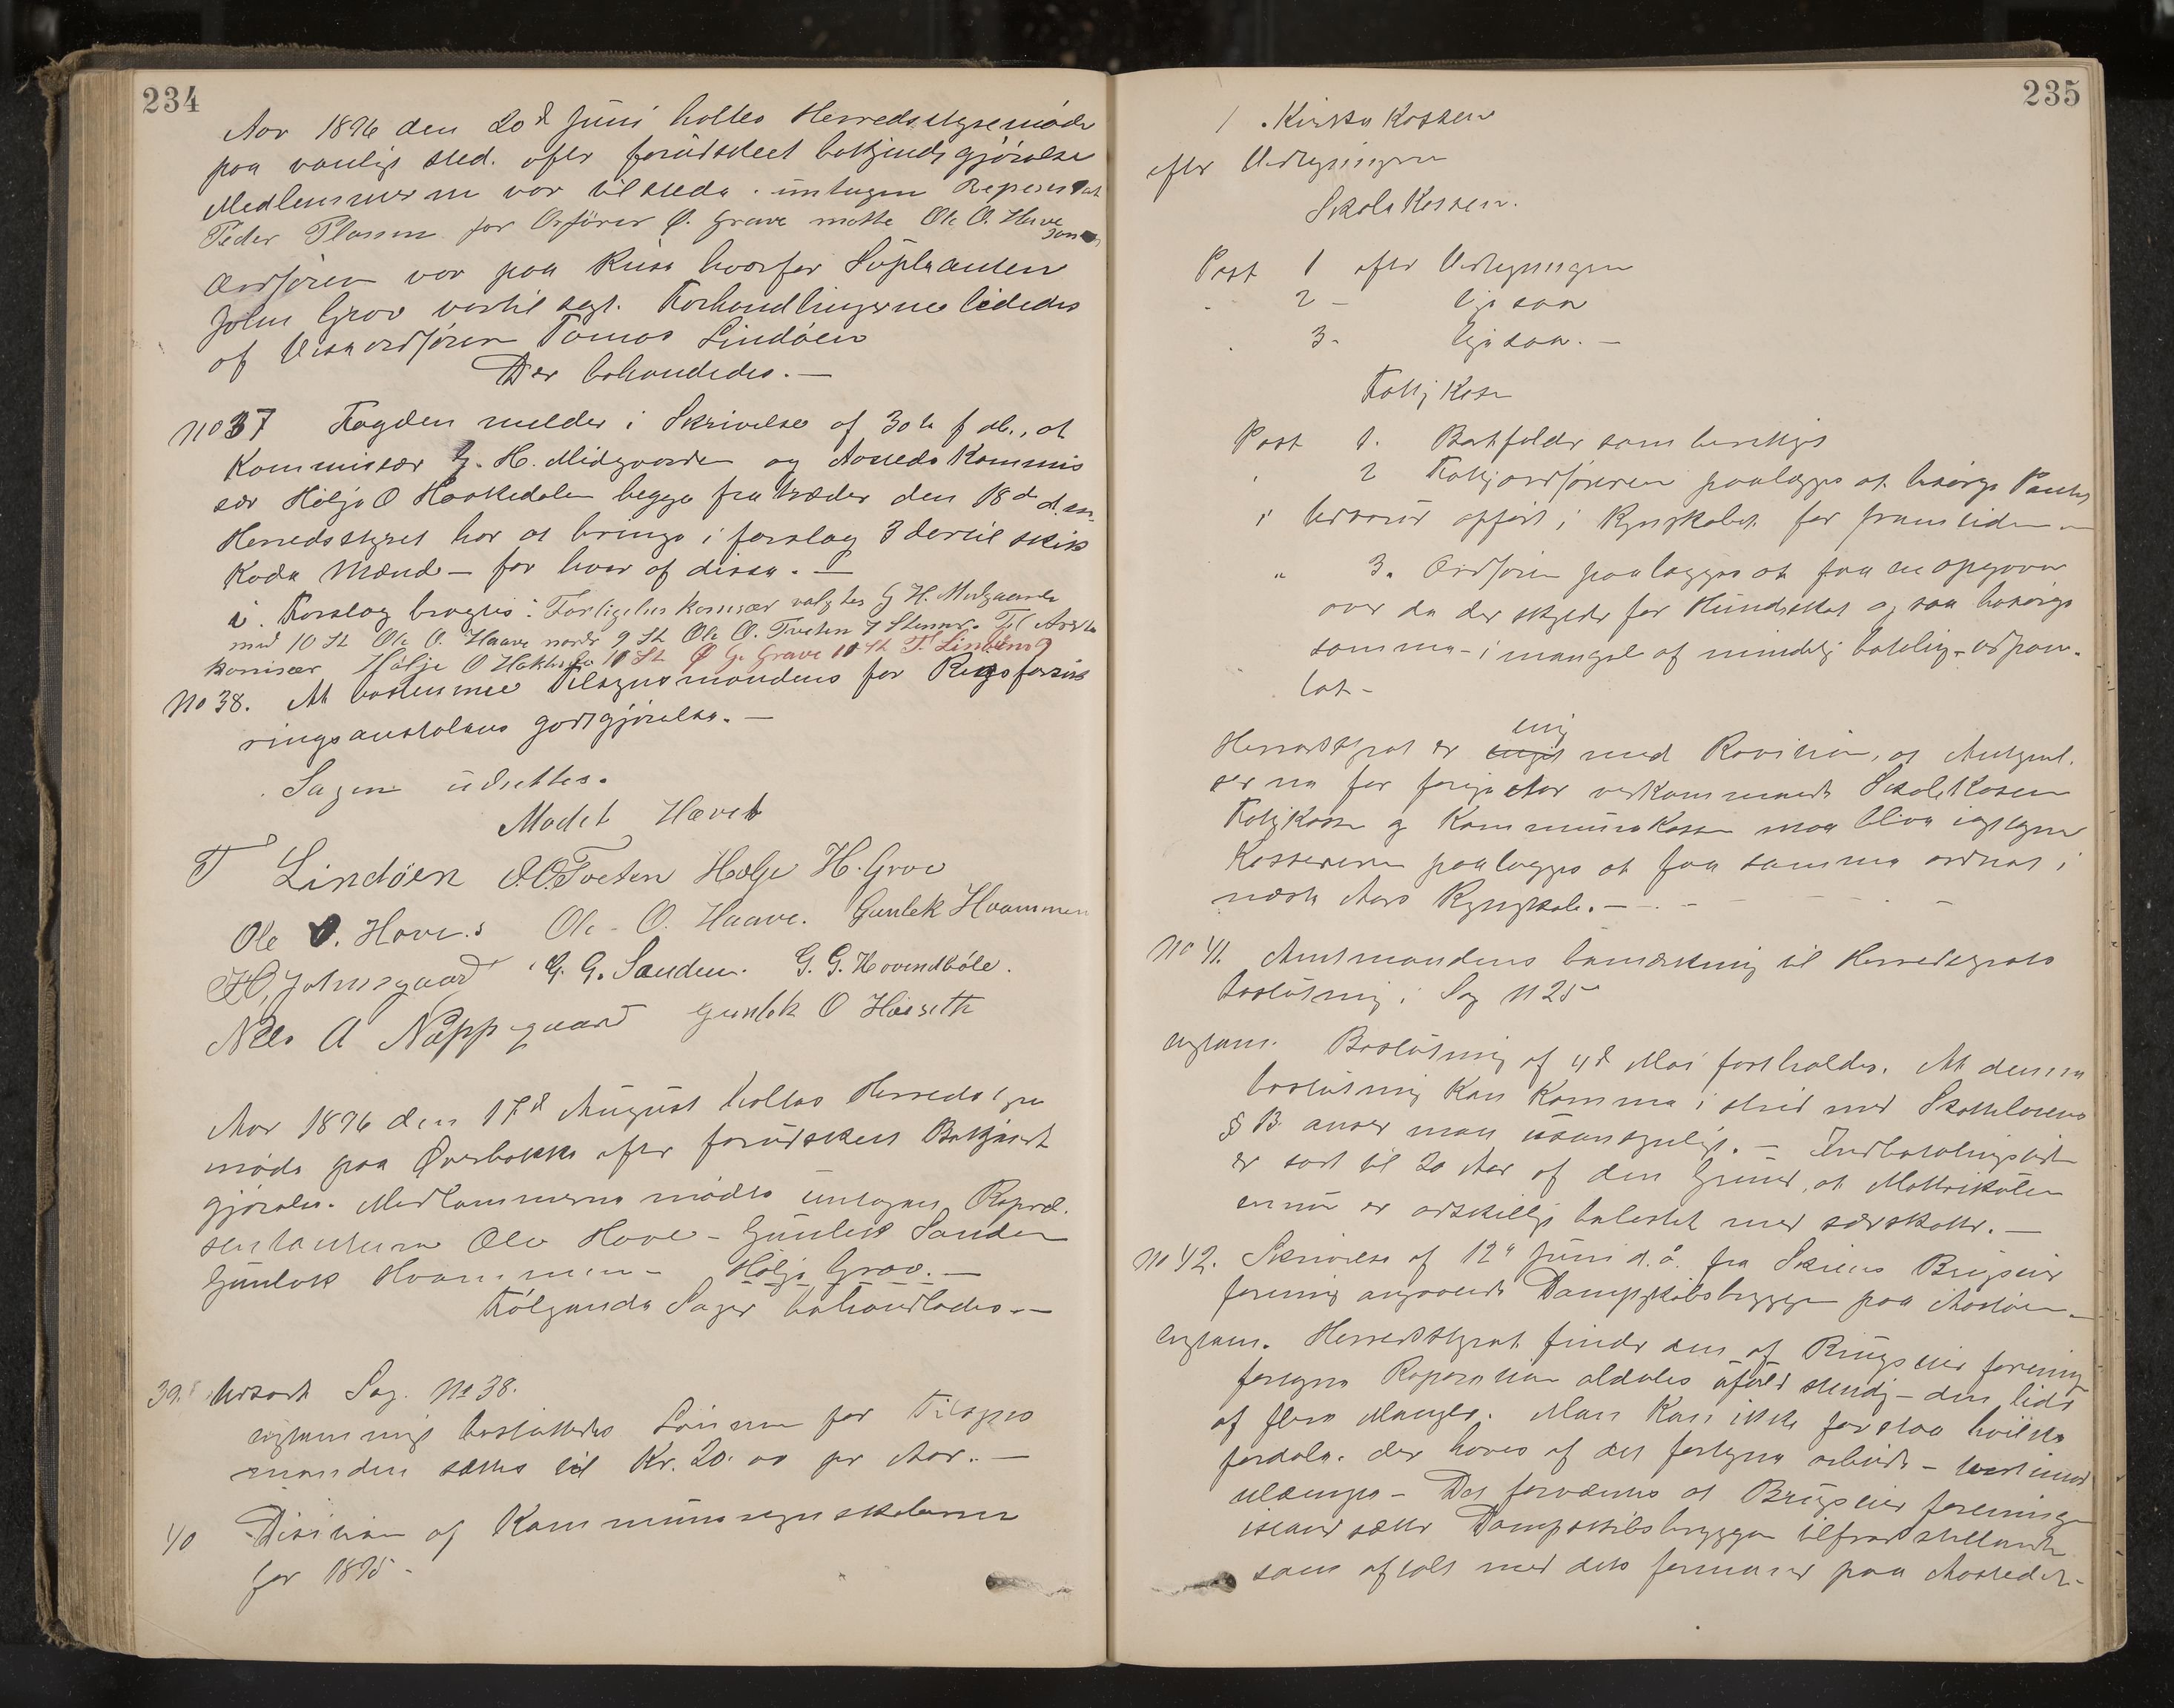 234
Aar 1896 den 20d Juni holtes Herredsstyremøde
paa vanligt sted. efter forudskeet bekjendtgjørelse
Medlemmerne var tilstede. untagen Represent
Peder Plassen for Orfører O. Grave møtte Ole O. Have
Ordføren var paa Reise hvorfor Supleanten
John Grov vartil sagt. Forhandlingerne lededes
af Viseordføren Tomas Lindøen
Der behandledes. —
No 37 Fogden melder i Skrivelse af 30te f. M., at
Kommissær G. H. Midgaarden og Aasteds Kommis
sær Hølje O Haakedalen begge fratræder den 18de d.
Herredsstyret har at bringe i forslag 3 dertil skik
kede Mænd — for hver af disse. —
i Forslag bragtes: Forligelses komsær valgtes G H. Midgaarden
med 10 St Ole O. Haave nordr 9 St Ole O. Tveten 7 Stemr. Til Aasteds
komisær Hølje O Hakedal 10 St O G. Grave 10 St T. Lindøen 9
No 38. At bestemme Tilsynsmandens for Rigsforsik
ringsanstaltens godtgjørelse. —
Sagen udsættes.
Mødet Hævet
T Lindöen O.O.Tveten Hølje H. Grov
Ole O. Hove.s Ole O. Haave. Gunlek Hvammen
H. Johnsgaard G. G. Sanden. G. G. Hovendböle.
Nils A Nappgaard Gunlek O Håseth
Aar 1896 den 17d August holtes Herredstyre
møde paa Øverbøkke efter forudskeet Bekjendt
gjørelse. Medlemmerne mødte untagen Repræ.
sentanterne Ole Hove - Gunlek Sanden
Gunlek Hvammen - Hølje Grov. —
Følgende Sager behandledes. —
39. Udsatt Sag. No 38.
enstemmigt besluttedes Lønnen for Tilsyns
manden sættes til Kr. 20.00 pr Aar. —
40 Desision af Kommuneregnskaberne
for 1895.
235
1. Kirke Kassen
efter Udtegningen
Skole Kassen.
Post 1 efter Udtegningen
" 2 - ligesaa
" 3 - ligesaa. —
Fattig Kasen
Post 1. Bortfalder som berettiget
" 2 Fattigordføreren paalægges at besørge
i opført i Regnskabet for fremtiden —
" 3. Ordføren paalægges at faa en opgave
over de der skylder for Hundeskat og saa besørge
samme - i mangel af mindelig betaling - udpan.
tet -
enig
Herredstyret er med Revision, at Antegnel.
serne for forrige Aar vedkommende Skolekasen
Fattigkassen og Kommunekassen maa blive
Kassereren paalægges at faa samme ordnet i
næste Aars Regnskab. —
No 41. Amtmandens bemærkning til Herredstyrets
beslutning i Sag N 25
enstem. Beslutning af 4d Mai fastholdes. At denne
beslutning kan komme i strid med Skatteloven
§ 13 anser man usansynligt. — Indbetalingstid
er sat til 20 Aar af den Grund, at Mattrikulen
ennu er adskillig belastet med særskatte. —
No 42. Skrivelse af 12te Juni d.å. fra Skiens Brugseier
forening angaaende Dampskibsbryggen paa
enstem. Herredstyret finder den af Brugseierforening
foretagne Reparation aldeles ufuldstændig - den lider
af flere Mangler. Man kan ikke forstaa hvilke
fordele. der haves af det foretagne arbeide -
Det forventes at Brugseierforeningen
istandsætter Dampskibsbryggen tilfredsstillende
som aftalt med dets formand paa Aastedet. -